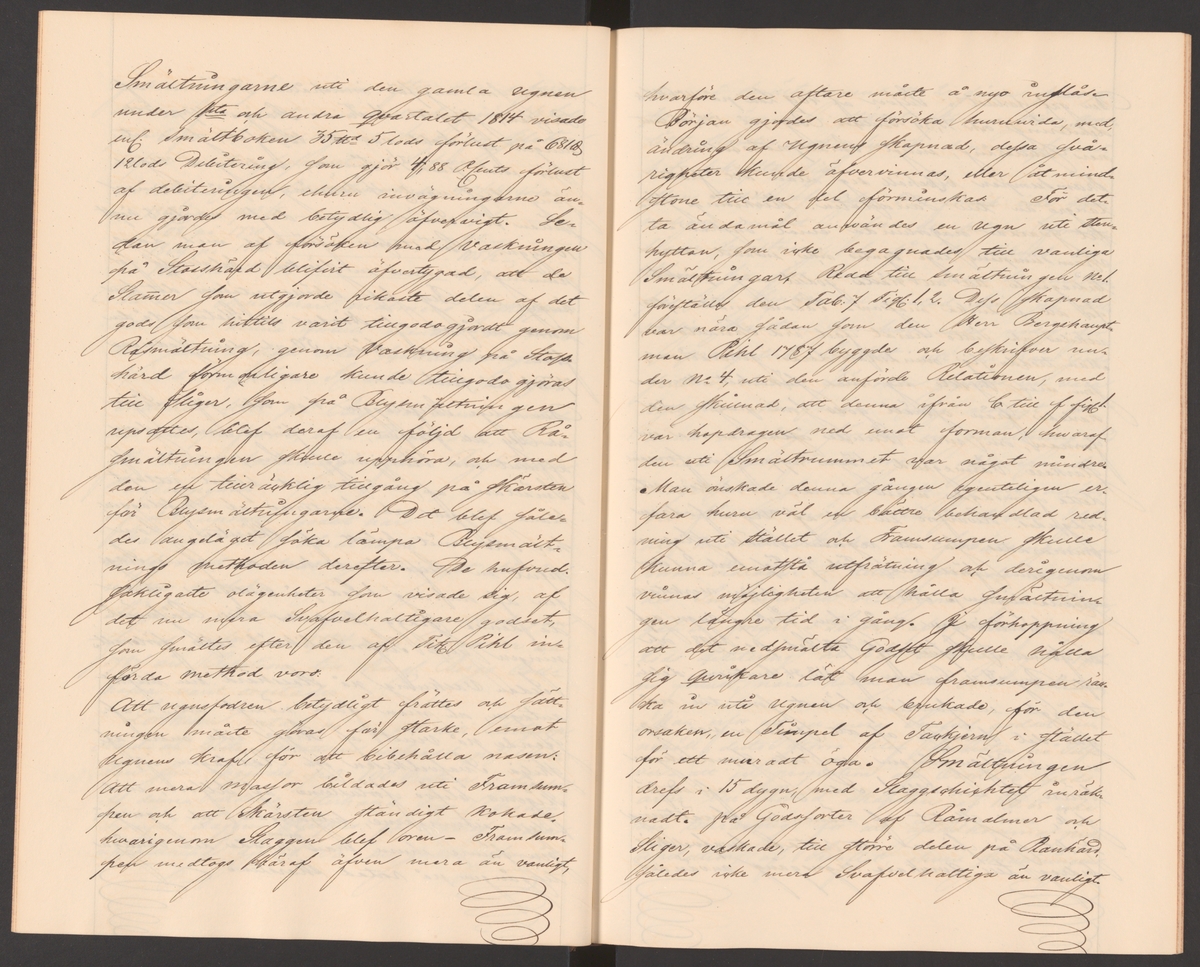 Smältningarne uti den gamla ugnen
under 1sta och andra Qvartalet 1814 visade
enl Smältboken 35 5 lods förlust på
12 lods Debitering, som gjör 4,88 förlust
af debiteringen, ehuru invägningarne än-
nu gjordes med betydlig öfvervigt. Se-
dan man af försöken med Vaskningen
på Stosshärd blifvit öfvertygad, att de
Slamer som utgjorde rikaste delen af det
gods som hittils varit tillgodogjordt genom
Råsmältning, genom Vaskning på Stoss-
härd förmonligare kunde tillgodogjöras
till sliger, som på Blysmältningen
upsattes, blef deraf en följd att Rå-
smältningen skulle upphöra, och med
den en tillräcklig tillgång på Skärsten
för Blysmältningarne. Det blef såle-
des angeläget söka lämpa Blysmält-
nings methoden derefter. De hufvud-
sakligaste olägenheter som visade sig, af
det nu mera Svafvelhaltigare godset,
som smältes efter den af Tit. Pihl in-
förda method voro.
Att ugnsfodren betydligt frättes och sätt-
ningen måste göras för starke, emot
Ugnens kraf, för att bibehålla nasen:
Att mera massor bildades uti Framsum-
pen och att Skärsten ständigt kokade,
hvarigenom Slaggen blef oren - Framsum-
pen medtogs häraf äfven mera än vanligt,
hvarföre den oftare måste å nyo inslås.
Början gjordes att försöka huruvida, med
ändring af Ugnens skapnad, dessa svå-
righeter kunde öfvervinnas, eller åt mind-
stone till en del förminskas För det-
ta ändamål användes en ugn uti sten-
hyttan, som icke begagnades till vanliga
Smältningar. Redd till smältningen
förställes den Tab: 7 Fig: 1, 2. Dess skapnad
var nära sådan som den Herr Bergshaupt-
man Pihl 1787 byggde och beskrifver un-
der No 4, uti den anförde Relationen, med
den skillnad, att denna ifrån b till f fig 1
var hopdragen ned emot forman, hvaraf
den uti Smältrummet var något mindre.
Man önskade denna gången egenteligen er-
fara huru väl en bättre behandlad red-
ning uti stället och Framsumpen skulle
kunna emotstå utfrätning och derigenom
vinnas möjligheten att hålla smältnin-
gen längre tid i gång. I förhoppning
att det nedsmälta Godset skulle hålla
sig qvickare lät man framsumpen räc-
ka in uti ugnen och brukade, för den
orsaken, en Timpel af Tackjern i stället
för ett muradt öga. Smältningen
drefs i 15 dygn, med Slaggschichtet inräk-
nadt. på Godssorter af Råmalmer och
Sliger, vaskade, till större delen på Ranhärd.
således icke mera Svafvelhaltiga än vanligt